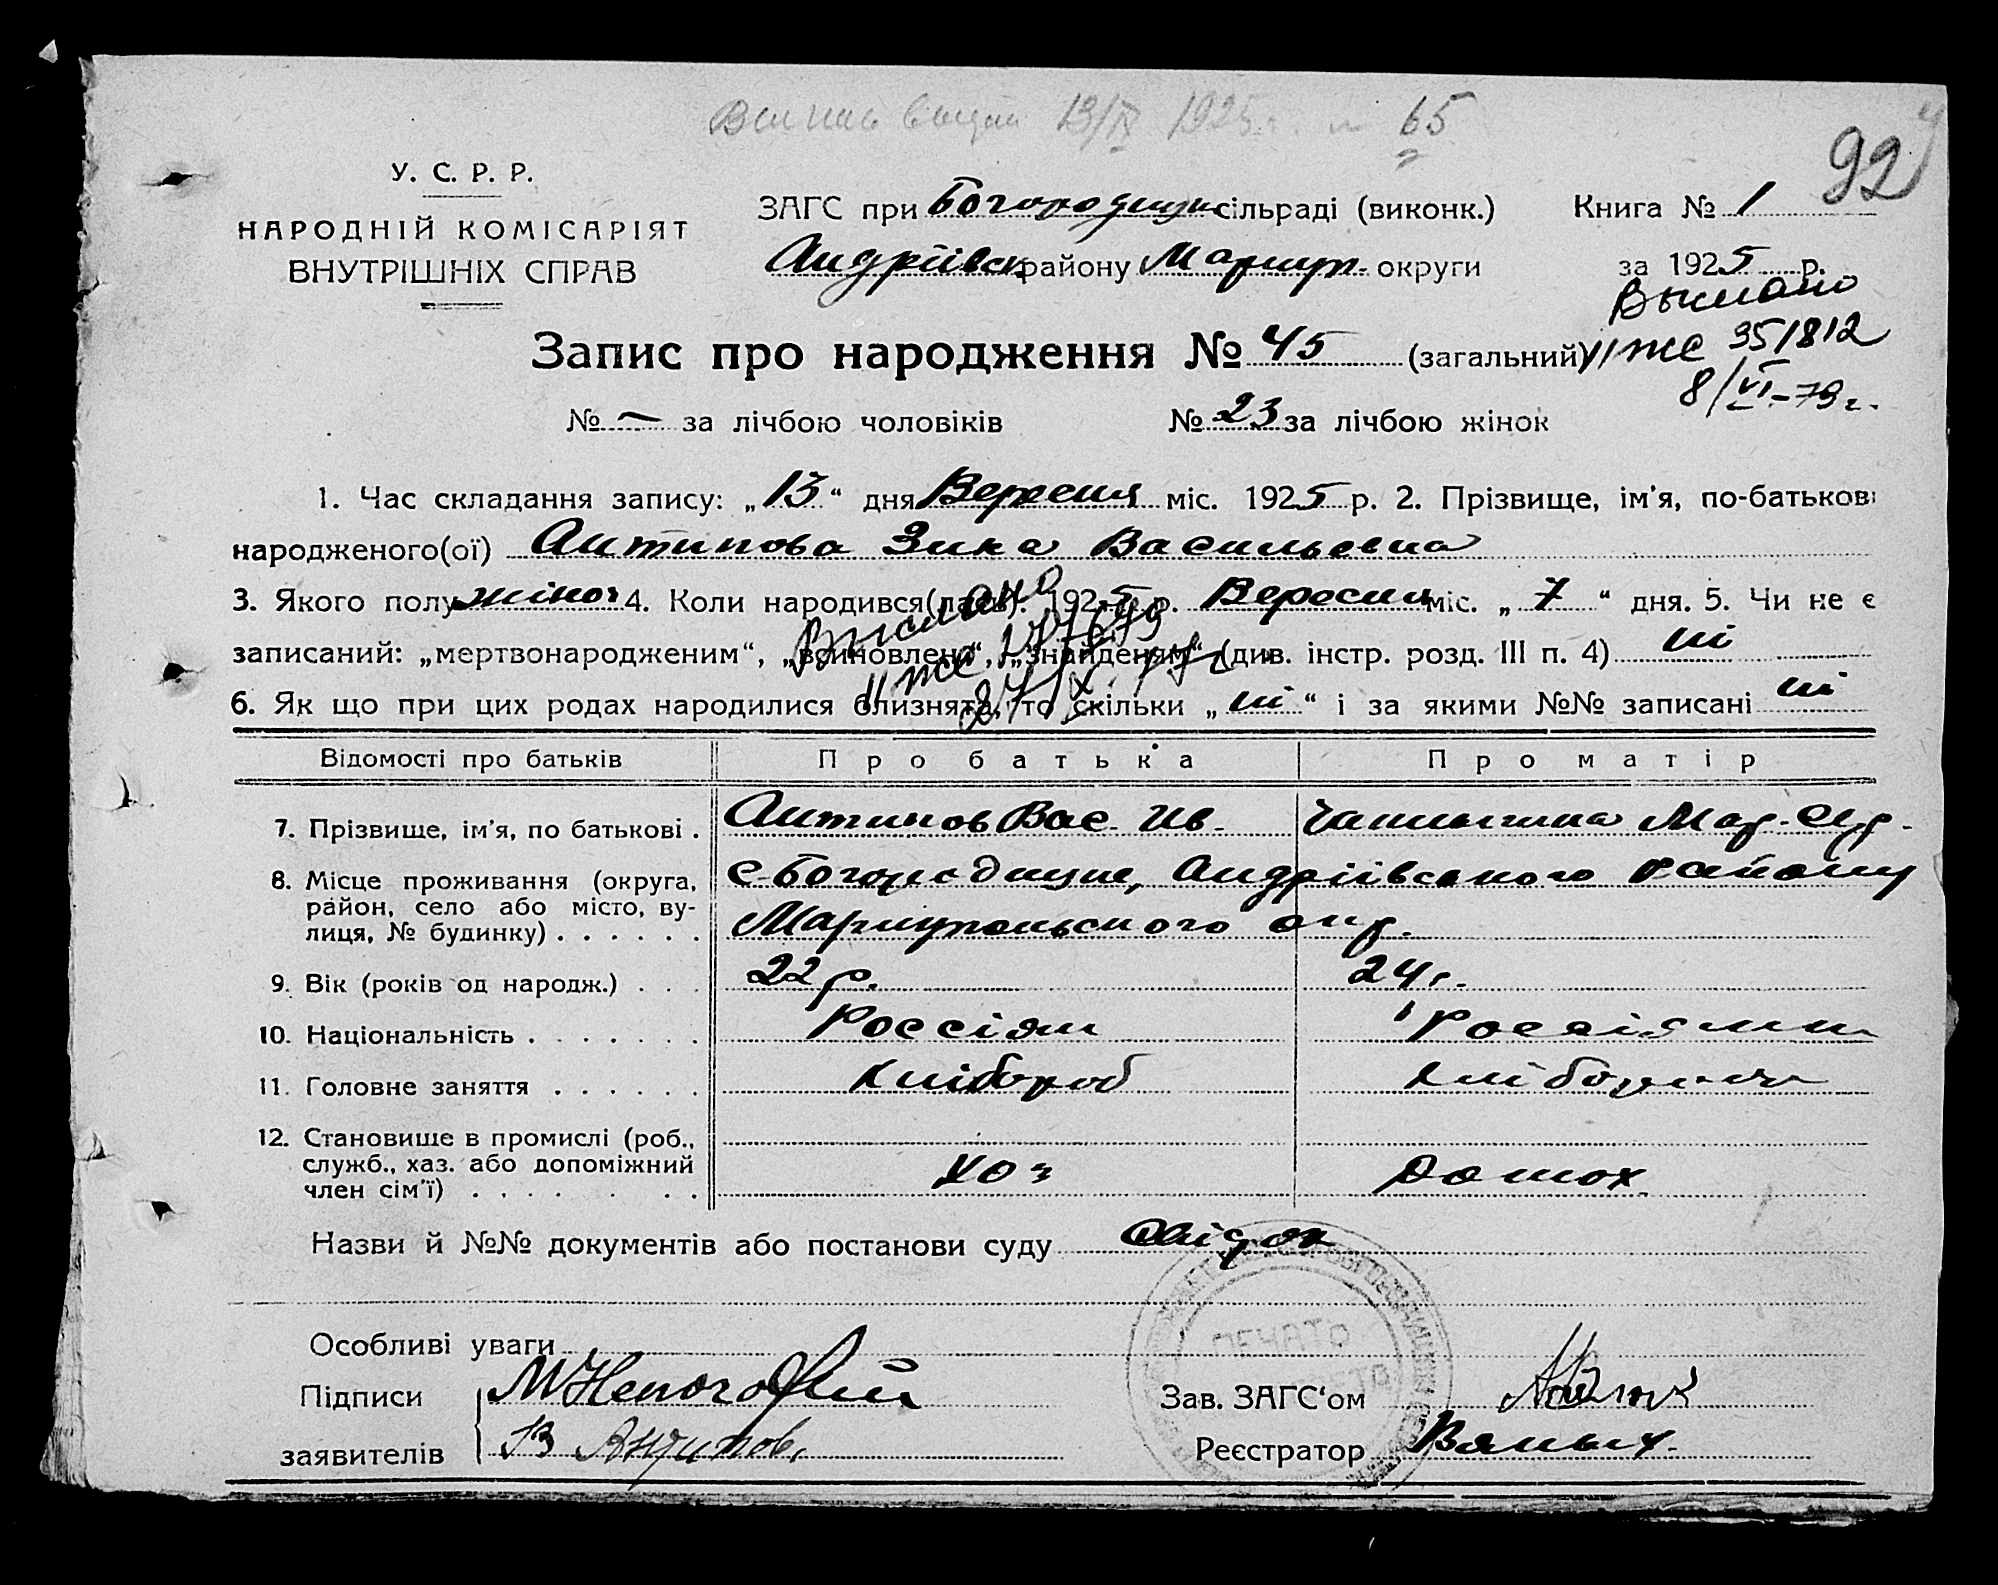 13/IX 1925 г. № 65
92
У. С. Р. Р.
НАРОДНІЙ КОМІСАРІЯТ
ВНУТРІШНІХ СПРАВ
ЗАГС при Богородицк сільраді (виконк.)
Андріївск району Мариуп. округи
Книга № 1
за 1925 р.
Выслано
II ЖС 351812
8/VI-79 г.
Запис про народження № 45 (загальний)
№ — за лічбою чоловіків № 23 за лічбою жінок
1. Час складання запису: „13“ дня Вересня міс. 1925 р. 2. Прізвище, ім'я, по-батькові
народженого(ої) Антипова Зина Васильевна
3. Якого полу жіноч 4. Коли народився(лась): 1925 р. Вересня міс. „7“ дня. 5. Чи не є
записаний: „мертвонародженим“, „всиновлено“, „знайденям“ (див. інстр. розд. III п. 4) ні
6. Як що при цих родах народилися близнята, то скільки „ні“ і за якими №№ записані ні
Выслано
II ЖС
Відомості про батьків Про батька Про матір
7. Прізвище, ім'я, по батькові . Антипов Вас. Ив. Мар.
8. Місце проживання (округа, район, село або місто, вулиця, № будинку) . . . . . . с-Богородицке, Андріївського району
Мариупольского окр.
9. Вік (років од народж.) . . . 22 р. 24 г.
10. Національність . . . . . . . Россіян Россіянин
11. Головне заняття . . . . . . Хлібороб
12. Становище в промислі (роб.,
служб., хаз. або допоміжний
член сім'ї) . . . . . . . хоз Домох
Назви й №№ документів або постанови суду Свідок
Особливі уваги
Підписи
заявителів В Антипов.
Зав. ЗАГС'ом
Реєстратор Вялых.
ПЕЧАТЬ